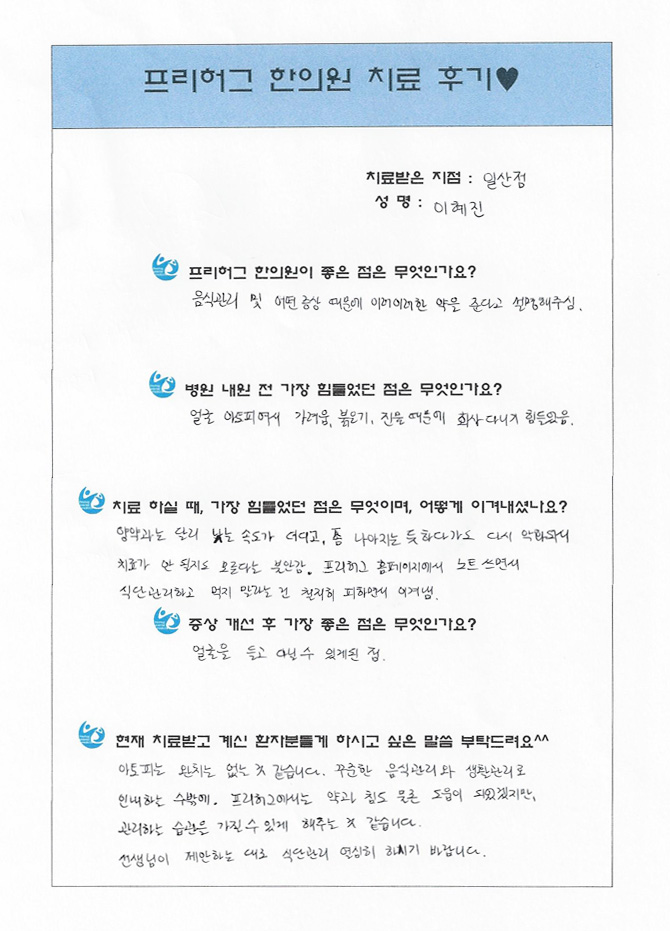 프리허그 한의원 치료 후기♥
치료받은 지점 : 일산점
성 명 : 이혜진
프리허그 한의원이 좋은 점은 무엇인가요?
음식관리 및 어떤 증상 때문에 이러이러한 약을 준다고 설명해주심.
병원 내원 전 가장 힘들었던 점은 무엇인가요?
얼굴 아토피여서 가려움, 붉은기, 진물 때문에 회사다니기 힘들었음.
치료 하실 때, 가장 힘들었던 점은 무엇이며, 어떻게 이겨내셨나요?
양약과는 달리 낫는 속도가 더디고, 좀 나아지는 듯하다가도 다시 악화되서
치료가 안 될지도 모른다는 불안감. 프리허그 홈페이지에서 노트 쓰면서
식단관리하고 먹지 말라는 건 철저히 피하면서 이겨냄.
증상 개선 후 가장 좋은 점은 무엇인가요?
얼굴을 들고 다닐 수 있게된 점.
현재 치료받고 계신 환자분들게 하시고 싶은 말씀 부탁드려요^^
아토피는 완치는 없는 것 같습니다. 꾸준한 음식관리와 생활관리로
인내하는 수밖에. 프리허그에서는 약과 침도 물론 도움이 되었겠지만,
관리하는 습관을 가질 수 있게 해주는 것 같습니다.
선생님이 제안하는 대로 식단관리 열심히 하시기 바랍니다.